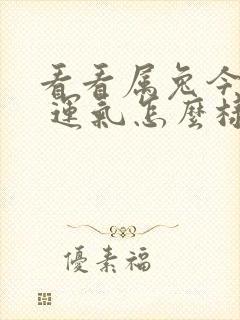 看看属兔今
運氣怎麼樣
優素福